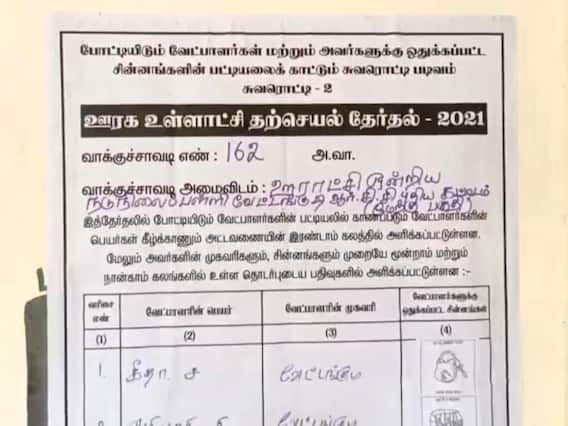 போட்டியிடும் வேட்பாளர்கள் மற்றும் அவர்களுக்கு ஒதுக்கப்பட்ட
சின்னங்களின் பட்டியலைக் காட்டும் சுவரொட்டி படிவம்
சுவரொட்டி - 2
ஊரக உள்ளாட்சி தற்செயல் தேர்தல் - 2021
வாக்குச்சாவடி எண் : 162 அ.வா.
வாக்குச்சாவடி அமைவிடம் : ஊராட்சி ஒன்றிய
நடுநிலைப்பள்ளி
இத்தேர்தலில் போட்டியிடும் வேட்பாளர்களின் பட்டியலில் காணப்படும் வேட்பாளர்களின்
பெயர்கள் கீழ்க்காணும் அட்டவணையின் இரண்டாம் கலத்தில் அளிக்கப்பட்டுள்ளன.
மேலும் அவர்களின் முகவரிகளும், சின்னங்களும் முறையே மூன்றாம் மற்றும்
நான்காம் கலங்களில் உள்ள தொடர்புடைய பதிவுகளில் அளிக்கப்பட்டுள்ளன :-
வரிசை எண் வேட்பாளரின் பெயர் வேட்பாளரின் முகவரி வேட்பாளர்களுக்கு ஒதுக்கப்பட்ட சின்னங்கள்
(1) (2) (3) (4)
1. கீதா. ச